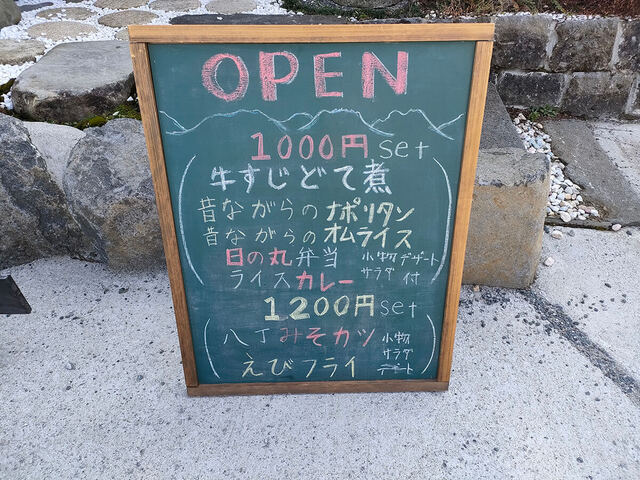 OPEN
1000円 set
牛すじどて煮
昔ながらのナポリタン
昔ながらのオムライス
日の丸弁当
ライスカレー
小物 デザート
サラダ 付
1200円 set
八丁みそカツ
えびフライ
小物
サラダ
デザート